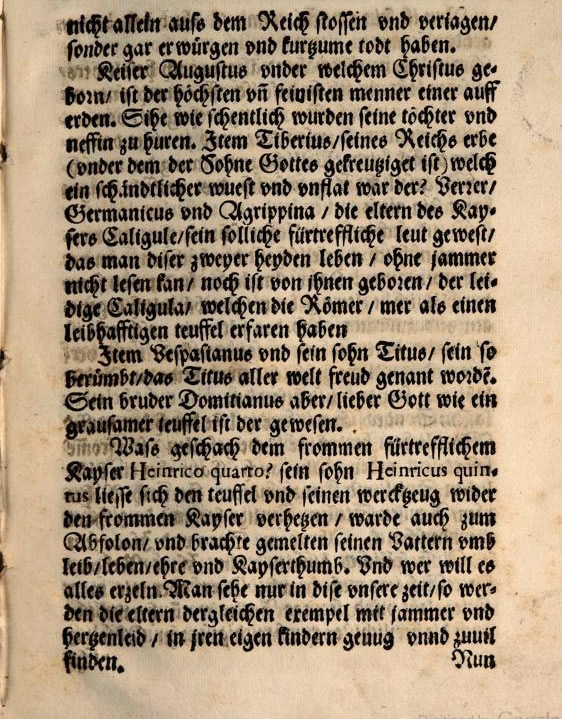 nicht allein auss dem Reich stossen vnd veriagen/
sonder gar erwürgen vnd kurtzume todt haben.
Keiser Augustus vnder welchem Christus ge-
born/ ist der höchsten vñ feinisten menner einer auff
erden. Sihe wie schentlich wurden seine töchter vnd
neffin zu huren. Item Tiberius/seines Reichs erbe
(vnder dem der Sohne Gottes gekreutziget ist) welch
ein schändtlicher wuest vnd vnflat war der? Verrer/
Germanicus vnd Agrippina / die eltern des Kay-
sers Caligule/sein solliche fürtreffliche leut gewest/
das man diser zweyer heyden leben / ohne jammer
nicht lesen kan/ noch ist von ihnen geboren/ der lei-
dige Caligula/ welchen die Römer / mer als einen
leibhafftigen teuffel erfaren haben
Item Vespasianus vnd sein sohn Titus/ sein so
berümbt/das Titus aller welt freud genant wordẽ.
Sein bruder Domitianus aber/ lieber Gott wie ein
grausamer teuffel ist der gewesen.
Wass geschach dem frommen fürtrefflichem
Kayser Heinrico quarto? sein sohn Heinricus quin-
tus liesse sich den teuffel vnd seinen werckzeug wider
den frommen Kayser verhetzen / warde auch zum
Absolon/ vnd brachte gemelten seinen Vattern vmb
leib/leben/ehre vnd Kayserthumb. Vnd wer will es
alles erzeln. Man sehe nur in dise vnsere zeit/so wer-
den die eltern dergleichen exempel mit jammer vnd
hertzenleid / in jren eigen kindern genug vnnd zuuil
finden. Nun